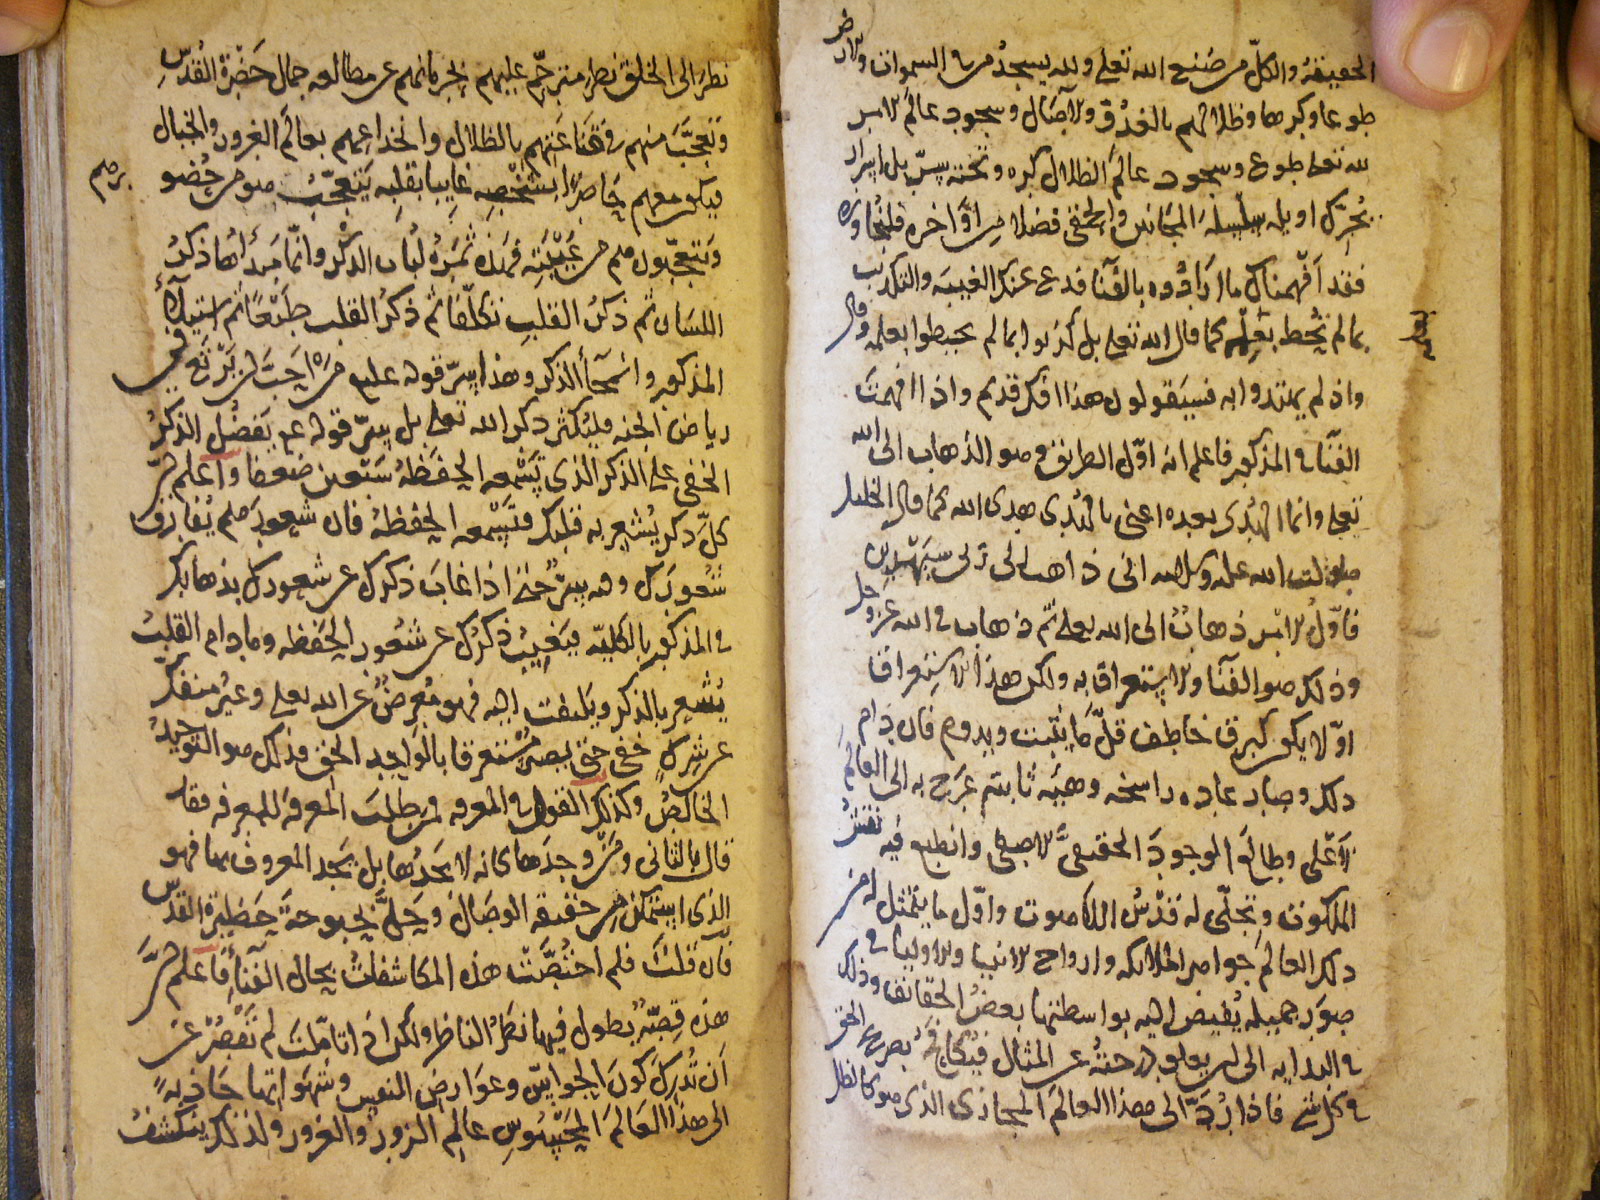 الحقيقة والكل من صنع الله تعلى ولله يسجد من في السموات والارض
طوعا وكرها وظلالهم بالغدو والاصال وسجود عالم الامر
لله تعلى طوع وسجود عالم الظلال كره وتحته سر بل اسرار
يحرك اويله سلسلة المجانين والحمقى فضلا من اواخره فلنجاوزه
فقد افهمناك ما ارادوه بالفنا فدع عنك الغيبة والتكذيب
بما لم تحط بعلمه كما قال الله تعلى بل كذبوا بما لم يحيطوا بعلمه وقال
واذ لم يهتدوا به فسيقولون هذا افك قديم واذا افهمت
الفنا في المذكور فاعلم انه اول الطريق وهو الذهاب الى الله
تعلى وانما الهدى بعده اعنى بالهدى هدى الله كما قال الخليل
صلوات الله عليه وسلامه انى ذاهب الى ربى سيهدين
فاول الامر ذهاب الى الله تعلى ثم ذهاب في الله عز وجل
وذلك هو الفنا والاستغراق به ولكن هذا الاستغراق
اولا يكون كبرق خاطف قل ما يثبت ويدوم فان دام
ذلك وصار عادة راسخة وهيئة ثابتة عرج به الى العالم
الاعلى وطالع الوجود الحقيقى الاصفى وانطبع فيه نقش
الملكوت وتجلى له قدس اللاهوت واول ما يتمثل له من
ذلك العالم جواهر الملائكة وارواح الانبيا والاوليا في
صور جميلة يفيض اليه بواسطتها بعض الحقائق وذلك
في البداية الى ان يعلو درجته عن المثال فيكافح بصريح الحق
في كل شى فاذا رد الى هذا العالم المجازى الذى هو كالظلال
نظر الى الخلق نظر مترحم عليهم لحرمانهم عن مطالعة جمال حضرة القدس
وتعجب منهم في قناعتهم بالظلال وانخداعهم بعالم الغرور والخيال
فيكون معهم حاضرا بشخصه غايبا بقلبه يتعجب هو من حضورهم
ويتعجبون هم من غيبته فهذه ثمرة لباب الذكر وانما مبدأها ذكر
اللسان ثم ذكر القلب تكلفا ثم ذكر القلب طبعا ثم استيلاء
المذكور وانمحاء الذكر وهذا سر قوله عليه من احب ان يرتع في
رياض الجنة فليكثر ذكر الله تعلى بل سر قوله عم يفضل الذكر
الخفى على الذكر الذى تسمعه الحفظة سبعين ضعفا واعلم ان
كل ذكر يشعر به قلبك فتسمعه الحفظة فان شعورهم يقارن
شعورك وفيه سر حتى اذا غاب ذكرك عن شعورك بذهابك
في المذكور بالكلية فيغيب ذكرك عن شعور الحفظة وما دام القلب
يشعر بالذكر ويلتفت اليه فهو معرض عن الله تعلى وغير منفك
عن شرك خفى حتى يصير مستغرقا بالواحد الحق فذلك هو التوحيد
الخالص وكذلك القول في المعرفة فمن طلب المعرفة للمعرفة فقد
قال بالثانى ومن وجدها كانه لا يجدها بل يجد المعروف بها فهو
الذى استمكن من حقيقة الوصال وحل بحبوحة حظيرة القدس
فان قلت فلم اختصت هذه المكاشفات بحال الفناء فاعلم ان
هذه قصة يطول فيها نظر الناظر ولكن اذا تاملت لم تقصر عن
ان تدرك كون الحواس وعوارض النفس وشهواتها جاذبة
الى هذا العالم المحسوس عالم الزور والغرور ولذلك ينكشف